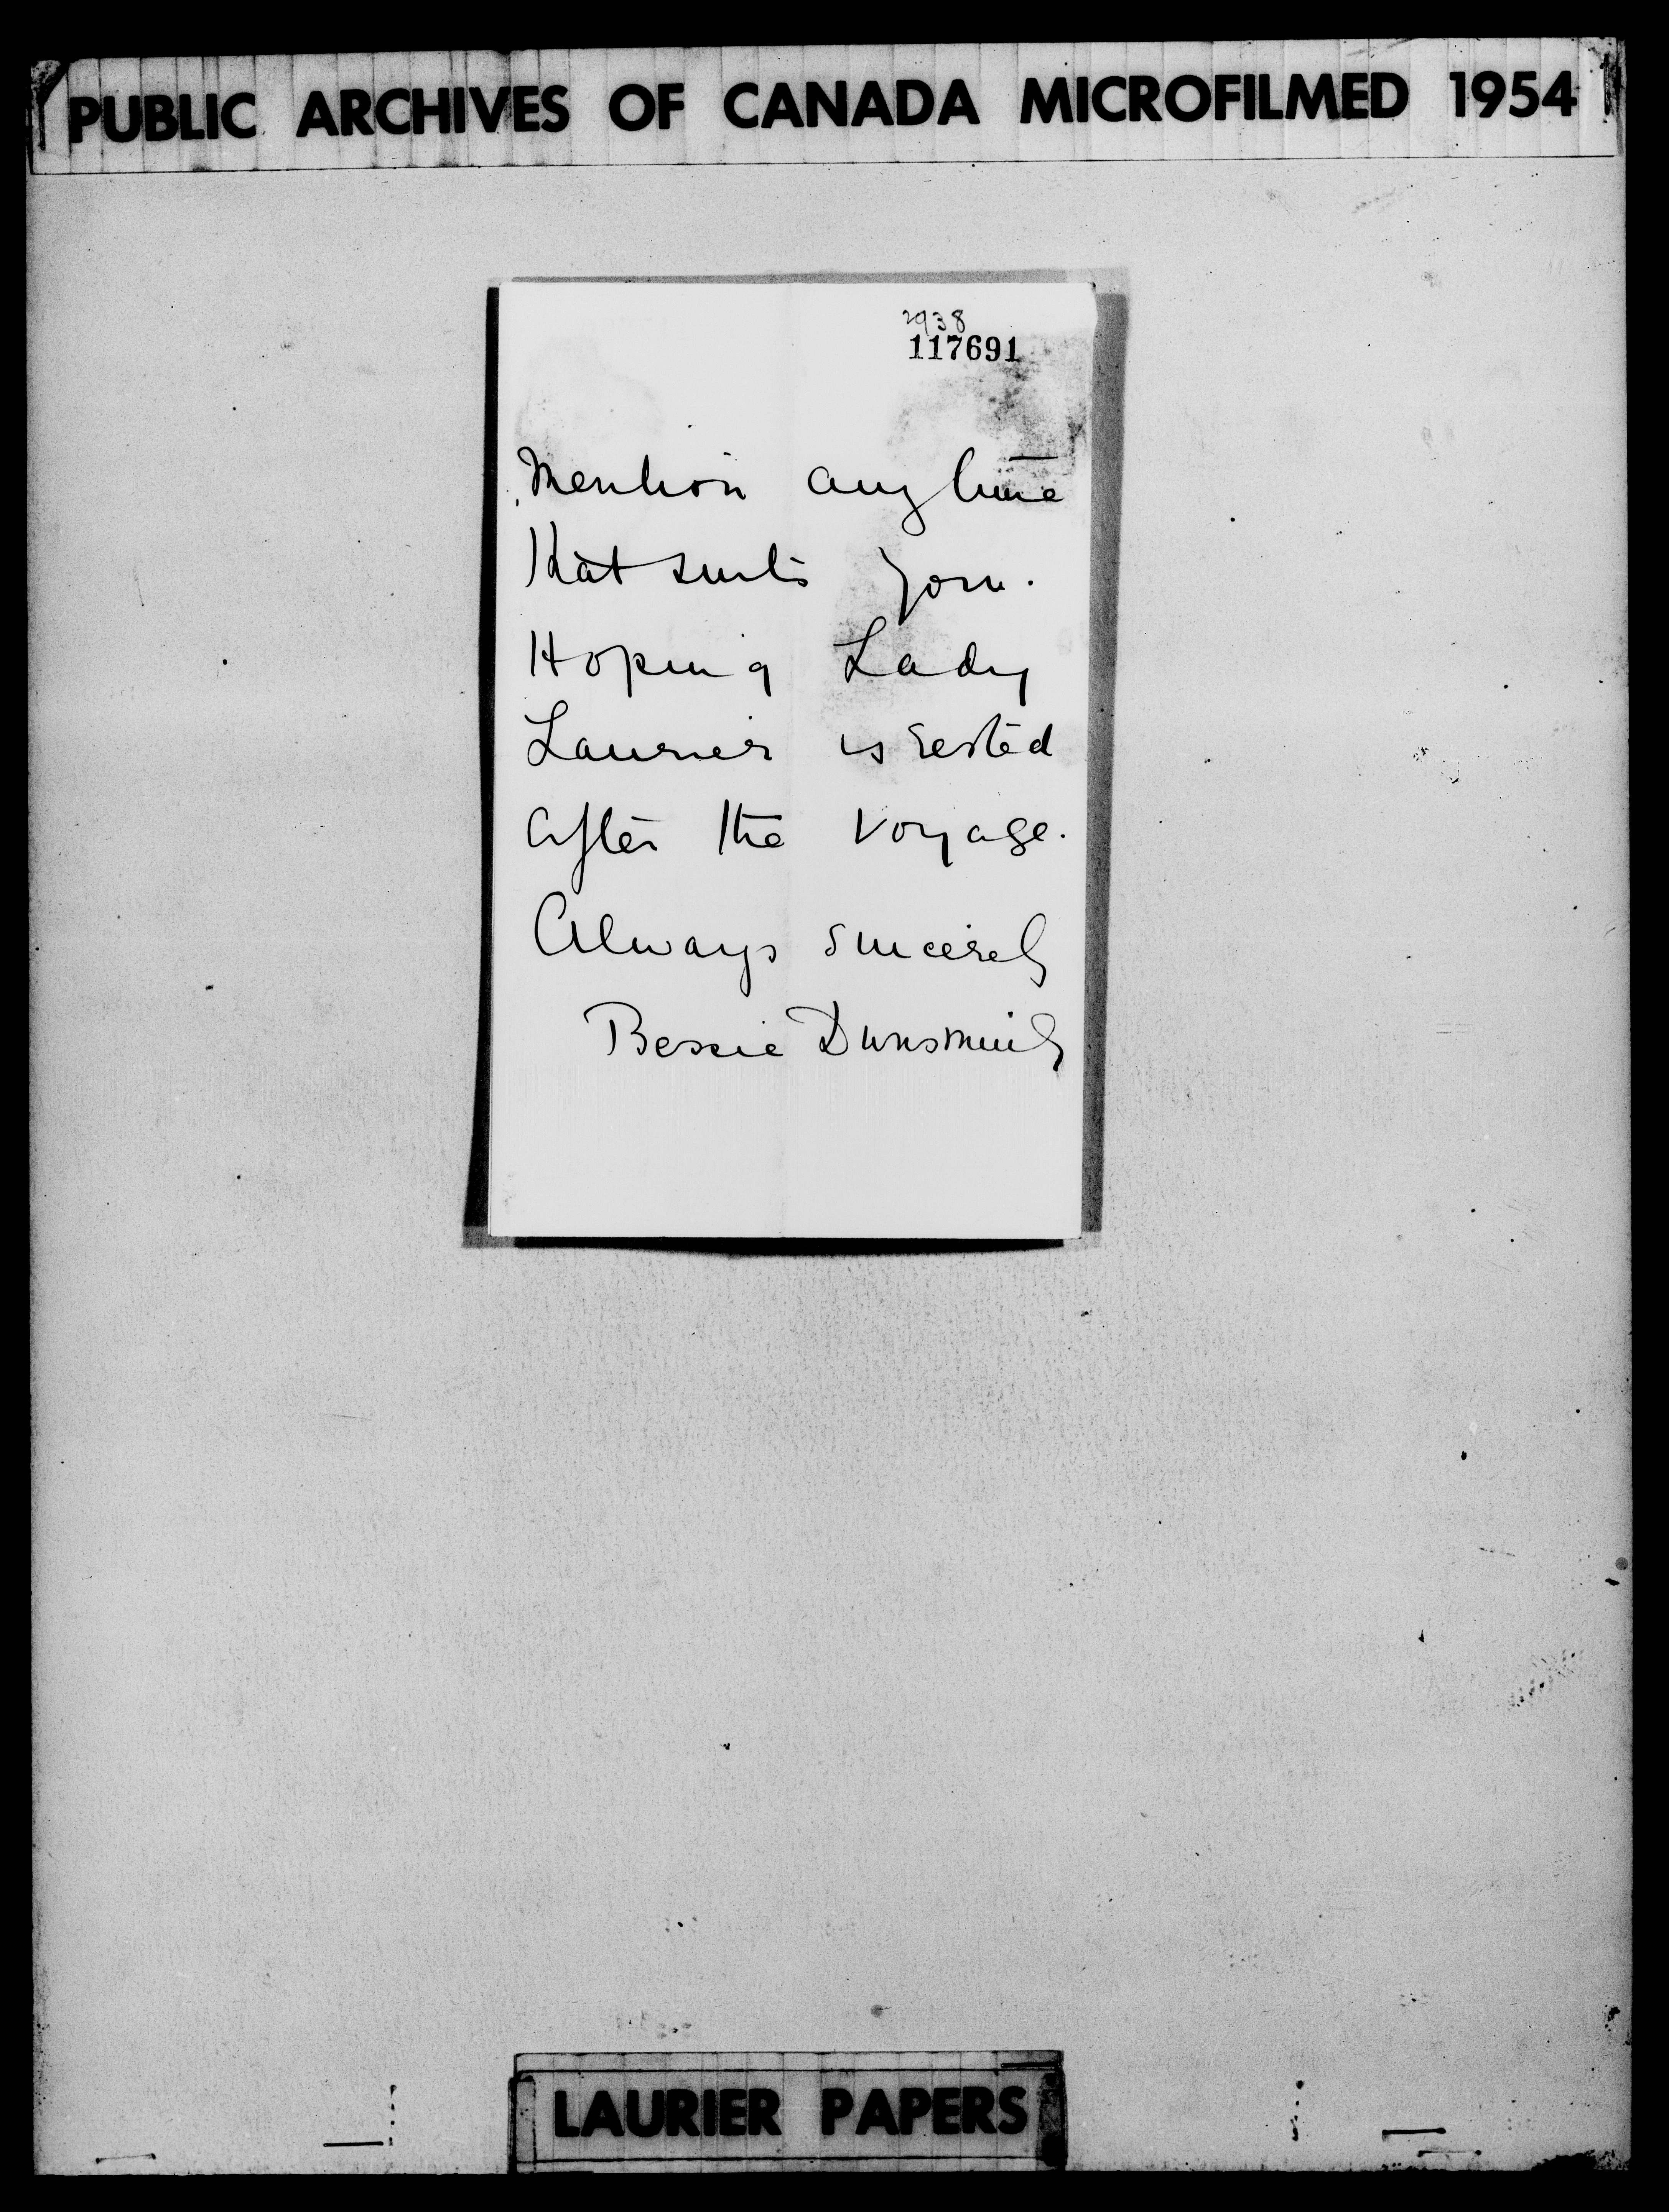 PUBLIC ARCHIVES OF CANADA MICROFILMED 1954
2938
117691
Mention any time
that suits you.
Hoping Lady
Laurier is rested
after the voyage.
Always sincerely
Bessie Dunsmuir
LAURIER PAPERS